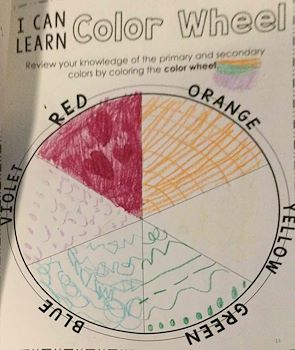 I CAN LEARN Color Wheel
Review your knowledge of the primary and secondary
colors by coloring the color wheel.
RED
ORANGE
VIOLET
YELLOW
BLUE
GREEN